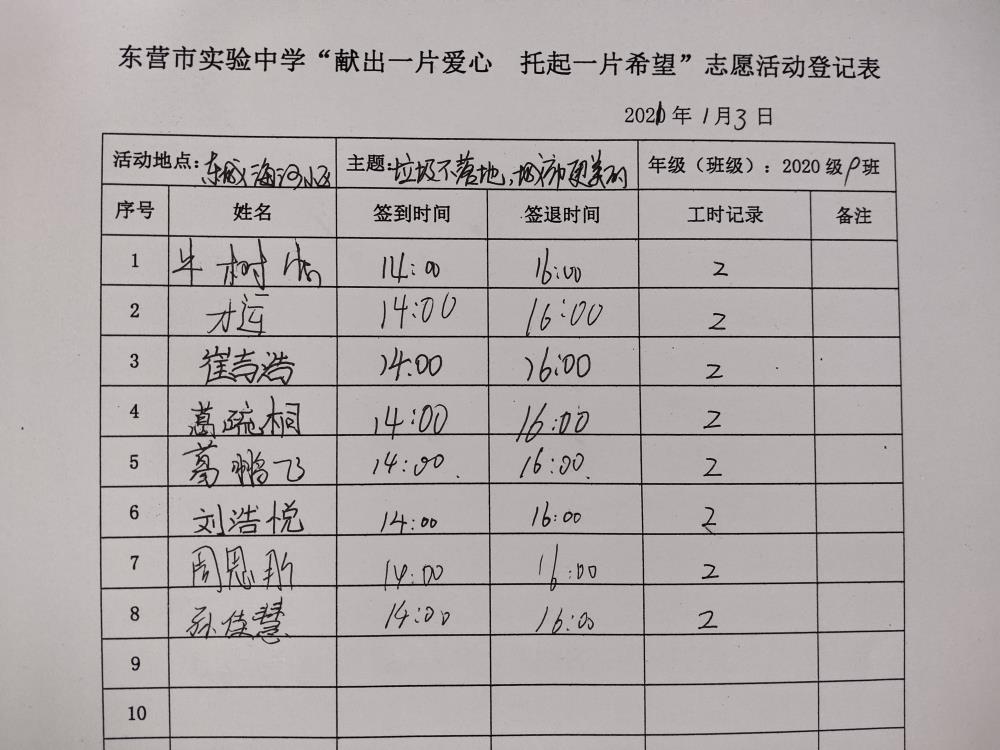 东营市实验中学“献出一片爱心 托起一片希望”志愿活动登记表
2021年1月3日
活动地点：东城海河小区 主题：垃圾不落地，城市更美丽 年级（班级）：2020级9班
序号 姓名 签到时间 签退时间 工时记录 备注
1 牛树 14:00 16:00 2
2 才运 14:00 16:00 2
3 崔吉浩 14:00 16:00 2
4 葛疏桐 14:00 16:00 2
5 葛鹏飞 14:00 16:00 2
6 刘浩悦 14:00 16:00 2
7 周恩 14:00 16:00 2
8 孙佳慧 14:00 16:00 2
9
10